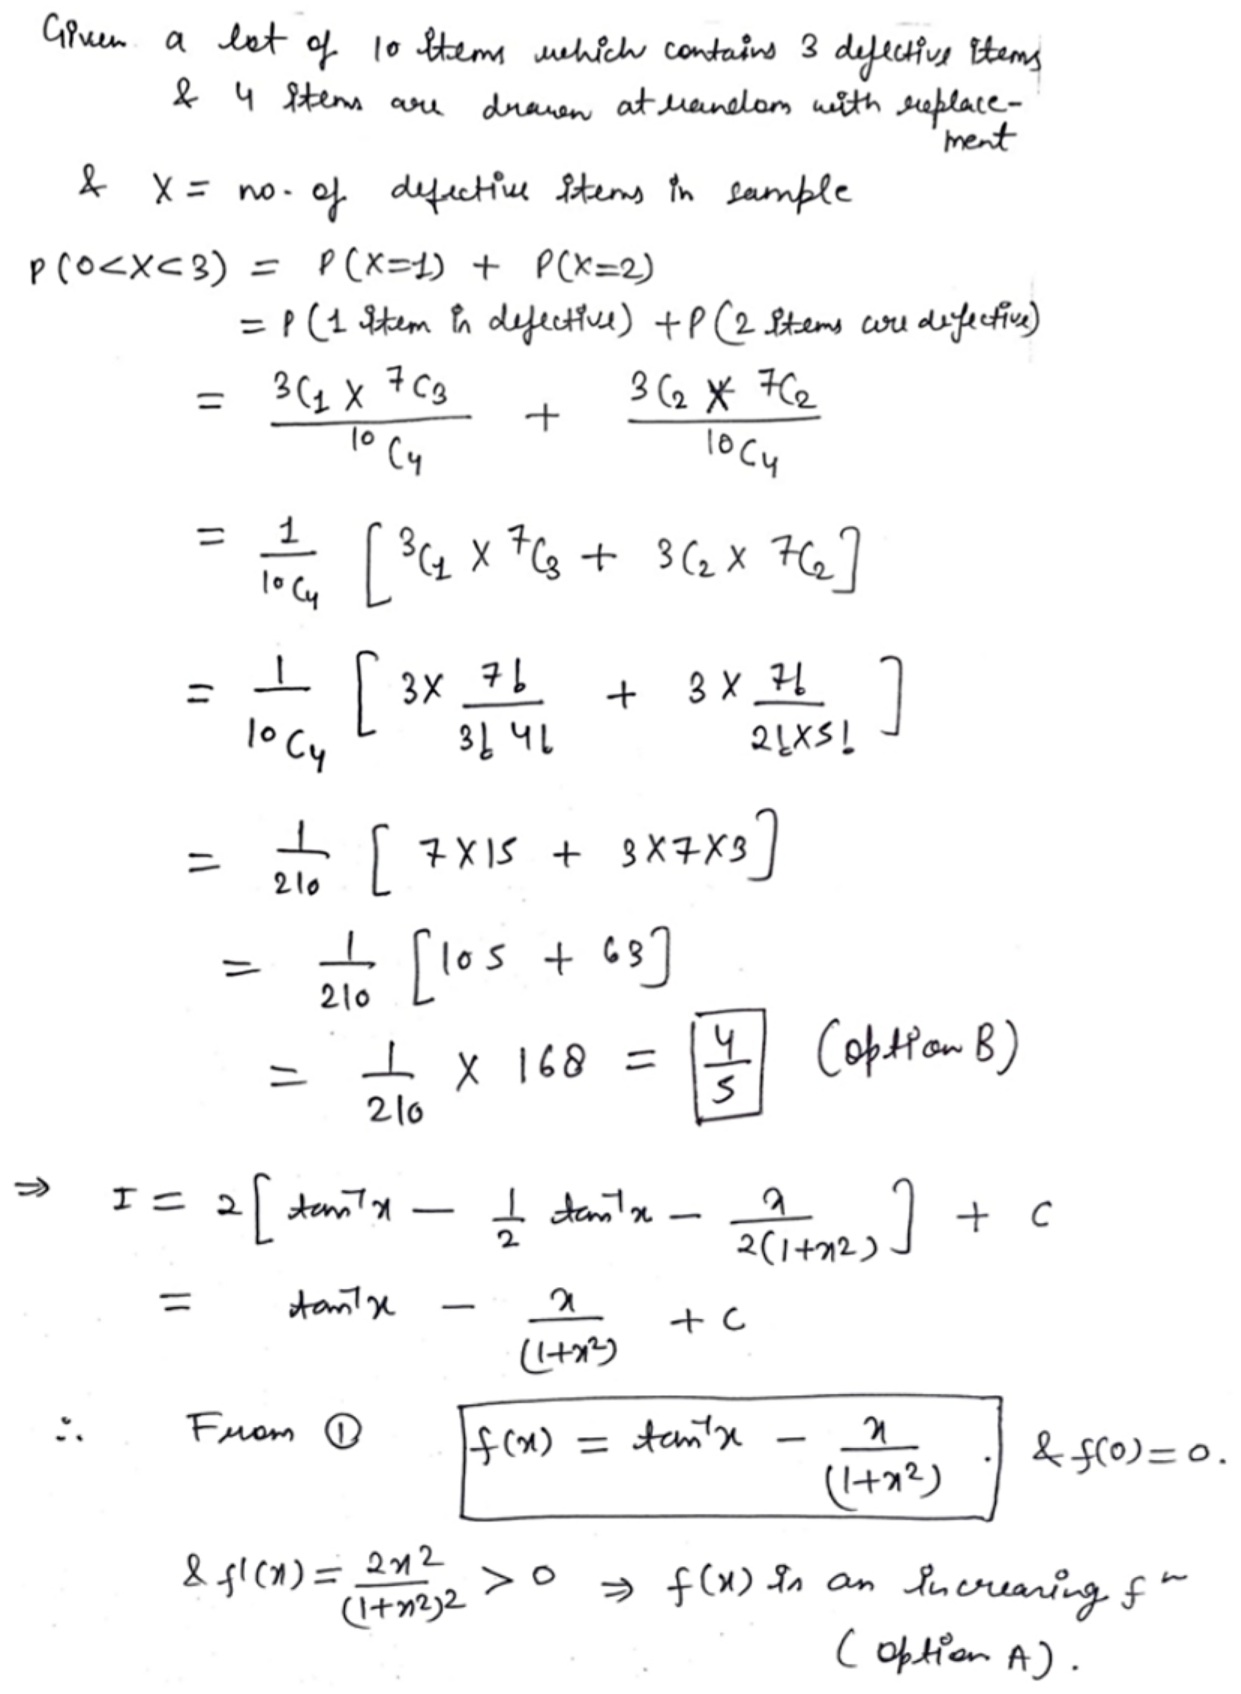 Given a lot of 10 items which contains 3 defective items
& 4 items are drawn at random with replace-
ment
& X = no. of defective items in sample
P(0<X<3) = P(X=1) + P(X=2)
= P(1 item is defective) + P(2 items are defective)
= (3C₁ × ⁷C₃)/(¹⁰C₄) + (3C₂ × ⁷C₂)/(¹⁰C₄)
= 1/(¹⁰C₄) [³C₁ × ⁷C₃ + 3C₂ × 7C₂]
= 1/(¹⁰C₄) [3 × 7!/(3! 4!) + 3 × 7!/(2! × 5!)]
= 1/210 [7×15 + 3×7×3]
= 1/210 [105 + 63]
= 1/210 × 168 = 4/5 (option B)
⇒ I = 2[tan⁻¹x − 1/2 tan⁻¹x − x/(2(1+x²))] + c
= tan⁻¹x − x/(1+x²) + c
∴ From ① f(x) = tan⁻¹x − x/(1+x²). & f(0)=0.
& f'(x) = 2x²/(1+x²)² > 0 ⇒ f(x) is an increasing fⁿ
(option A).